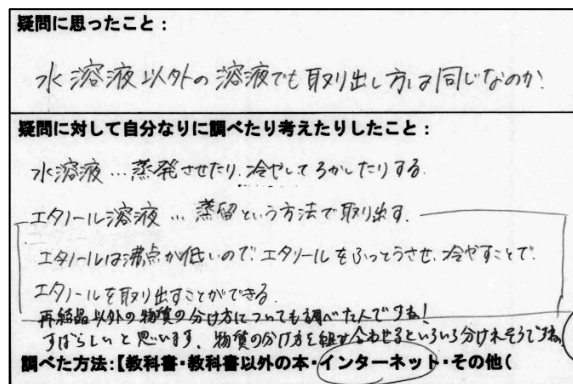 疑問に思ったこと：
水溶液以外の溶液でも取り出し方は同じなのか?
疑問に対して自分なりに調べたり考えたりしたこと：
水溶液…蒸発させたり、冷やしてろかしたりする。
エタノール溶液…蒸留という方法で取り出す。
エタノールは沸点が低いので、エタノールをふっとうさせ、冷やすことで、
エタノールを取り出すことができる。
再結晶以外の物質の分け方についても調べたんですね!
すばらしいと思います。物質の分け方を組み合わせるといろいろ分けれそうですね。
調べた方法：【教科書・教科書以外の本・インターネット・その他（